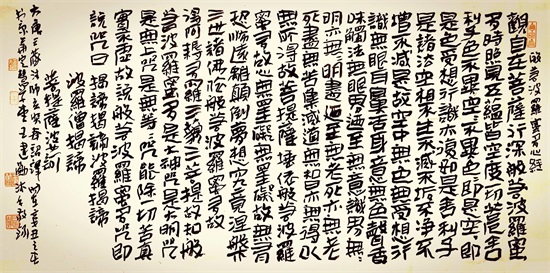 般若波羅蜜多心經
觀自在菩薩行深般若波羅蜜
多時照見五蘊皆空度一切苦厄舍
利子色不異空空不異色色即是空空即
是色受想行識亦復如是舍利子
是諸法空相不生不滅不垢不淨不
增不減是故空中無色無受想行
識無眼耳鼻舌身意無色聲香
味觸法無眼界乃至無意識界無無
明亦無無明盡乃至無老死亦無老
死盡無苦集滅道無智亦無得以
無所得故菩提薩埵依般若波羅
蜜多故心無罣礙無罣礙故無有
恐怖遠離顛倒夢想究竟涅槃
三世諸佛依般若波羅蜜多故
得阿耨多羅三藐三菩提故知般
若波羅蜜多是大神咒是大明咒
是無上咒是無等等咒能除一切苦真
實不虛故說般若波羅蜜多咒即
說咒曰揭諦揭諦波羅揭諦
波羅僧揭諦
菩提薩婆訶
大唐三藏法師玄奘奉詔譯時在辛丑之